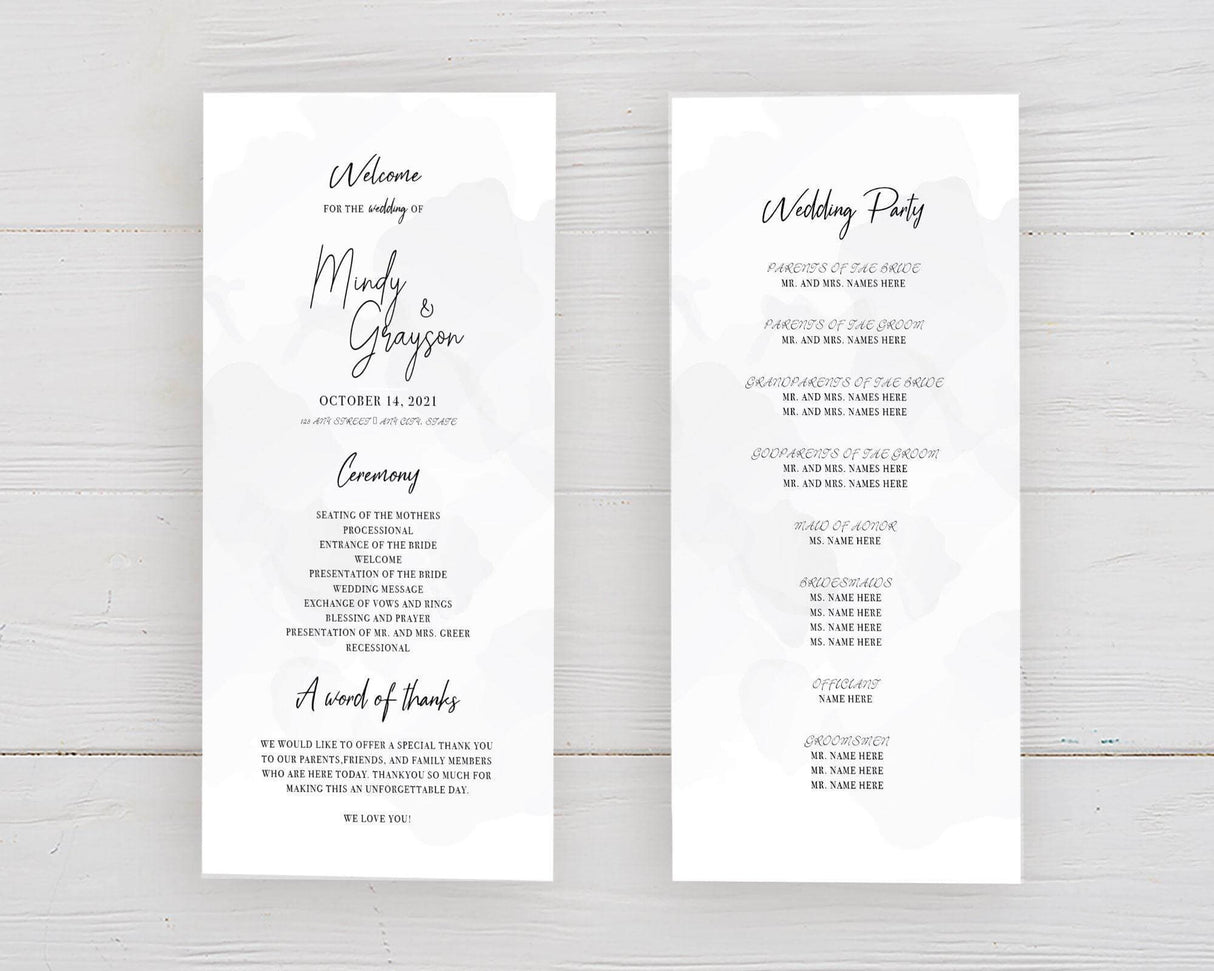 Welcome
FOR THE wedding OF
Mindy
&
Grayson
OCTOBER 14, 2021
123 ANY STREET▯ ANY CITY, STATE
Ceremony
SEATING OF THE MOTHERS
PROCESSIONAL
ENTRANCE OF THE BRIDE
WELCOME
PRESENTATION OF THE BRIDE
WEDDING MESSAGE
EXCHANGE OF VOWS AND RINGS
BLESSING AND PRAYER
PRESENTATION OF MR. AND MRS. GREER
RECESSIONAL
A word of thanks
WE WOULD LIKE TO OFFER A SPECIAL THANK YOU
TO OUR PARENTS,FRIENDS, AND FAMILY MEMBERS
WHO ARE HERE TODAY. THANKYOU SO MUCH FOR
MAKING THIS AN UNFORGETTABLE DAY.
WE LOVE YOU!
Wedding Party
PARENTS OF THE BRIDE
MR. AND MRS. NAMES HERE
PARENTS OF THE GROOM
MR. AND MRS. NAMES HERE
GRANDPARENTS OF THE BRIDE
MR. AND MRS. NAMES HERE
MR. AND MRS. NAMES HERE
GODPARENTS OF THE GROOM
MR. AND MRS. NAMES HERE
MR. AND MRS. NAMES HERE
MAID OF HONOR
MS. NAME HERE
BRIDESMAIDS
MS. NAME HERE
MS. NAME HERE
MS. NAME HERE
MS. NAME HERE
OFFICIANT
NAME HERE
GROOMSMEN
MR. NAME HERE
MR. NAME HERE
MR. NAME HERE